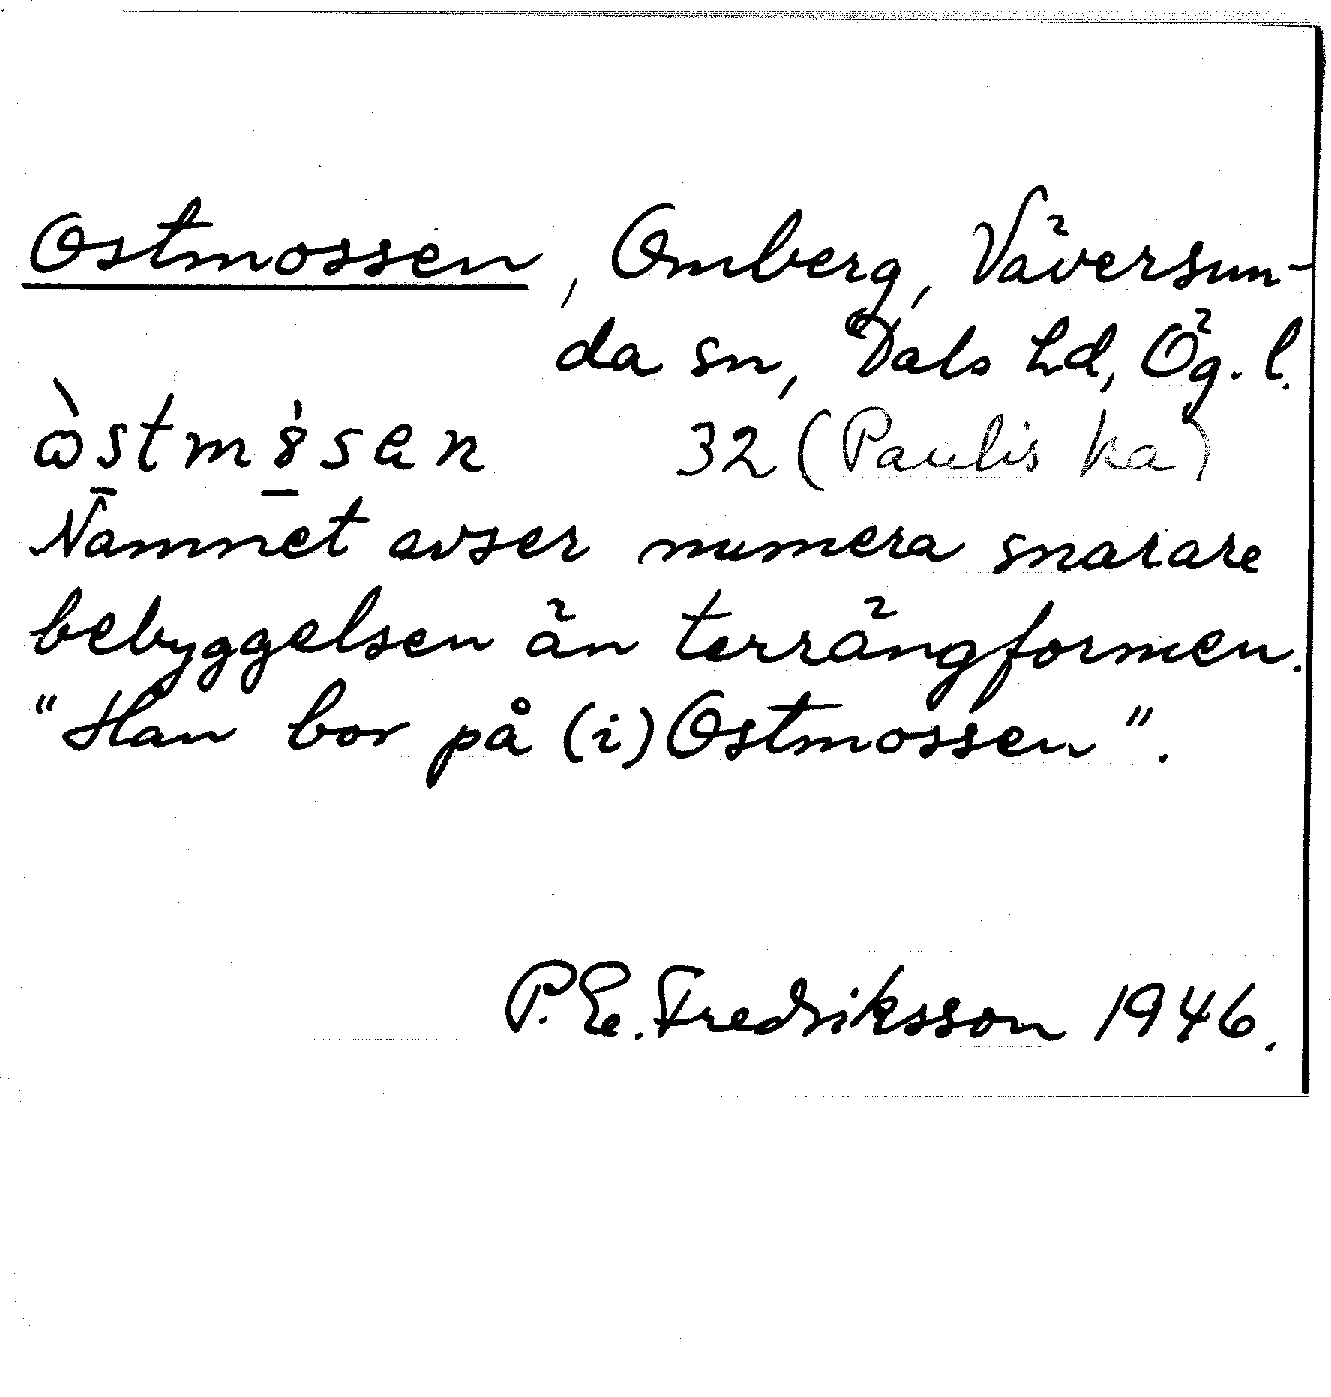 Ostmossen, Omberg, Väversun-
da sn, Dals hd, Ög. l.
32 (Paulis ka)
Namnet avser numera snarare
bebyggelsen än terrängformen.
"Han bor på (i) Ostmossen".
P. E. Fredriksson 1946.